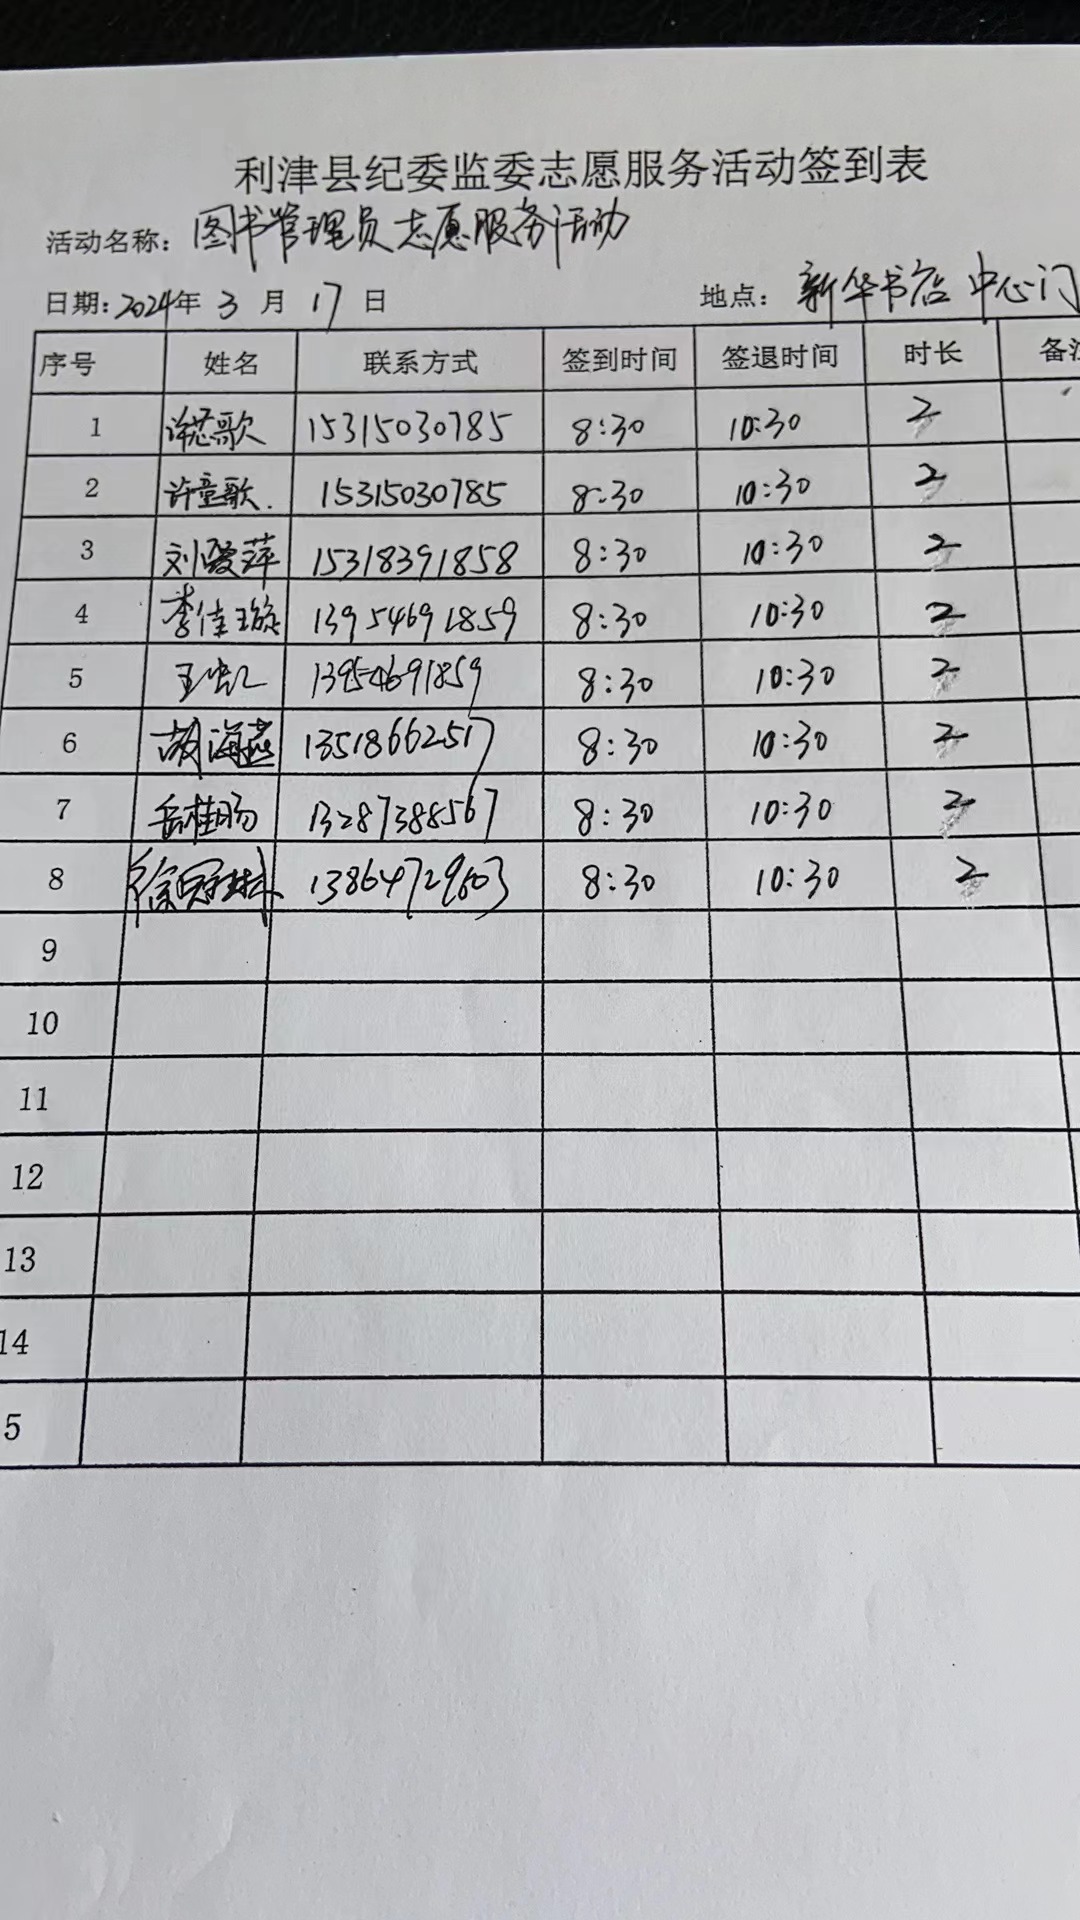 利津县纪委监委志愿服务活动签到表
活动名称: 图书管理员志愿服务活动
日期: 2024年 3 月 17 日 地点: 新华书店 中心门
序号 姓名 联系方式 签到时间 签退时间 时长 备注
1 许芯歌 15315030785 8:30 10:30 2
2 许童歌. 15315030785 8:30 10:30 2
3 刘爱萍 15318391858 8:30 10:30 2
4 李佳璇 13954691859 8:30 10:30 2
5 13954691859 8:30 10:30 2
6 胡海燕 13518662517 8:30 10:30 2
7 岳桂肠 13287388567 8:30 10:30 2
8 13864729603 8:30 10:30 2
9
10
11
12
13
14
5